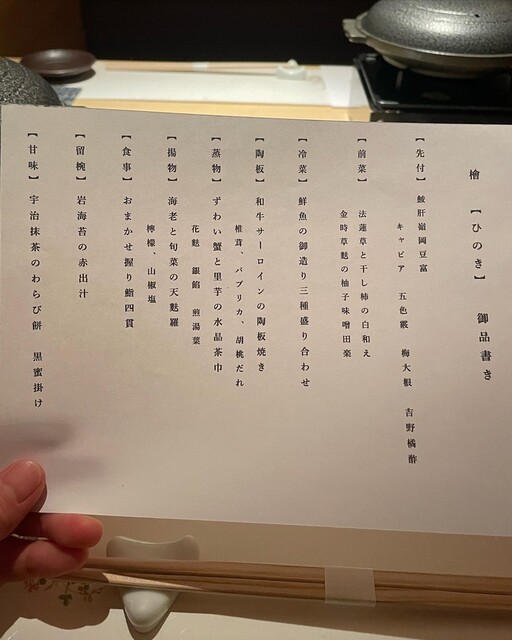 檜 【ひのき】 御品書き
【先付】 鮟肝嶺岡豆富
キャビア 五色霰 梅大根 吉野橘酢
【前菜】 法蓮草と干し柿の白和え
金時草麩の柚子味噌田楽
【冷菜】 鮮魚の御造り三種盛り合わせ
【陶板】 和牛サーロインの陶板焼き
椎茸、パプリカ、胡桃だれ
【蒸物】 ずわい蟹と里芋の水晶茶巾
花麩 銀餡 煎湯葉
【揚物】 海老と旬菜の天麩羅
檸檬、山椒塩
【食事】 おまかせ握り鮨四貫
【留椀】 岩海苔の赤出汁
【甘味】 宇治抹茶のわらび餅 黒蜜掛け